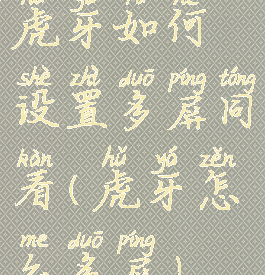 虎牙如何
shè zhì duō píng tóng
设置多屏同
kàn hǔ yá zěn
看(虎牙怎
me duō píng
么多屏)